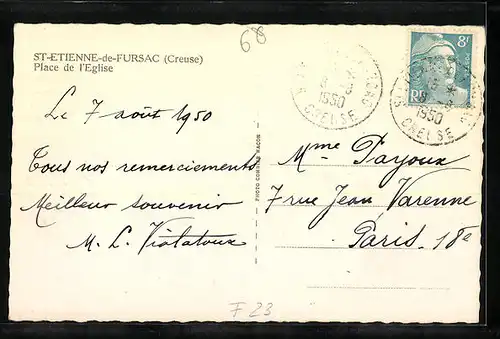 68
ST-ETIENNE-de-FURSAC (Creuse)
Place de l'Eglise
Le 7 août 1950
Tous nos remerciements
Meilleur souvenir
M. L. Violatoux
8F
RF
1950
CREUSE
1950
CREUSE
Mme Payoux
7 rue Jean Varenne
Paris. 18e
F 23